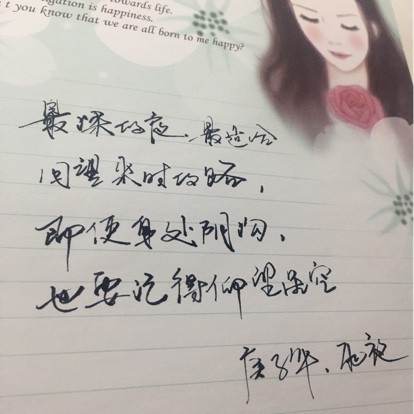 towards life.
is happiness.
t you know that we are all born to me happy?
最深的夜、最适合
回望来时的路,
即便身处阴沟,
也要记得仰望星空
子华、